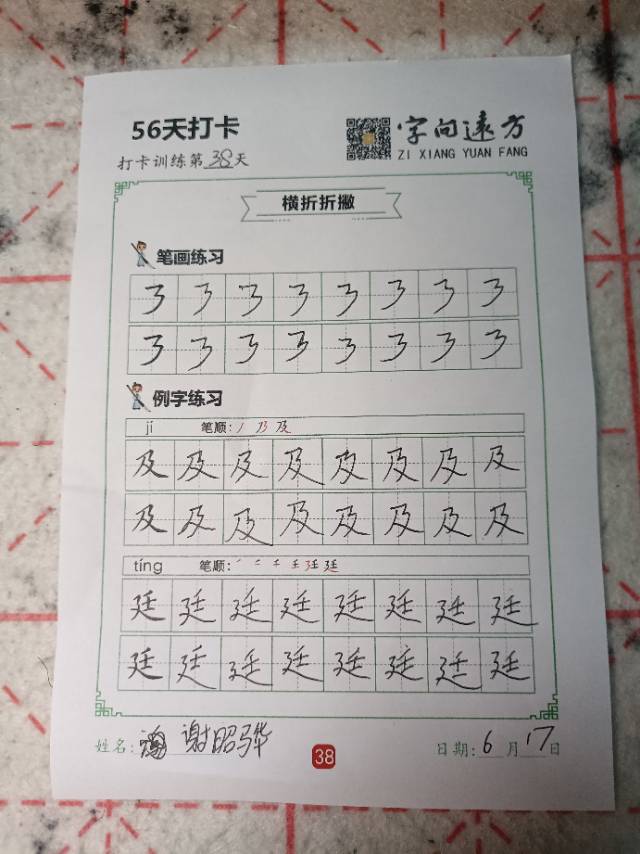 56天打卡
字向遠方
打卡训练第38天
ZI XIANG YUAN FANG
横折折撇
笔画练习
例字练习
jí 笔顺: 丿 乃 及
及 及 及 及 及 及 及 及
及 及 及 及 及 及 及 及
tíng 笔顺: 一 二 千 壬 廷 廷
廷 廷 廷 廷 廷 廷 廷 廷
廷 廷 廷 廷 廷 廷 廷 廷
姓名: 谢昭骅
38
日期: 6月17日